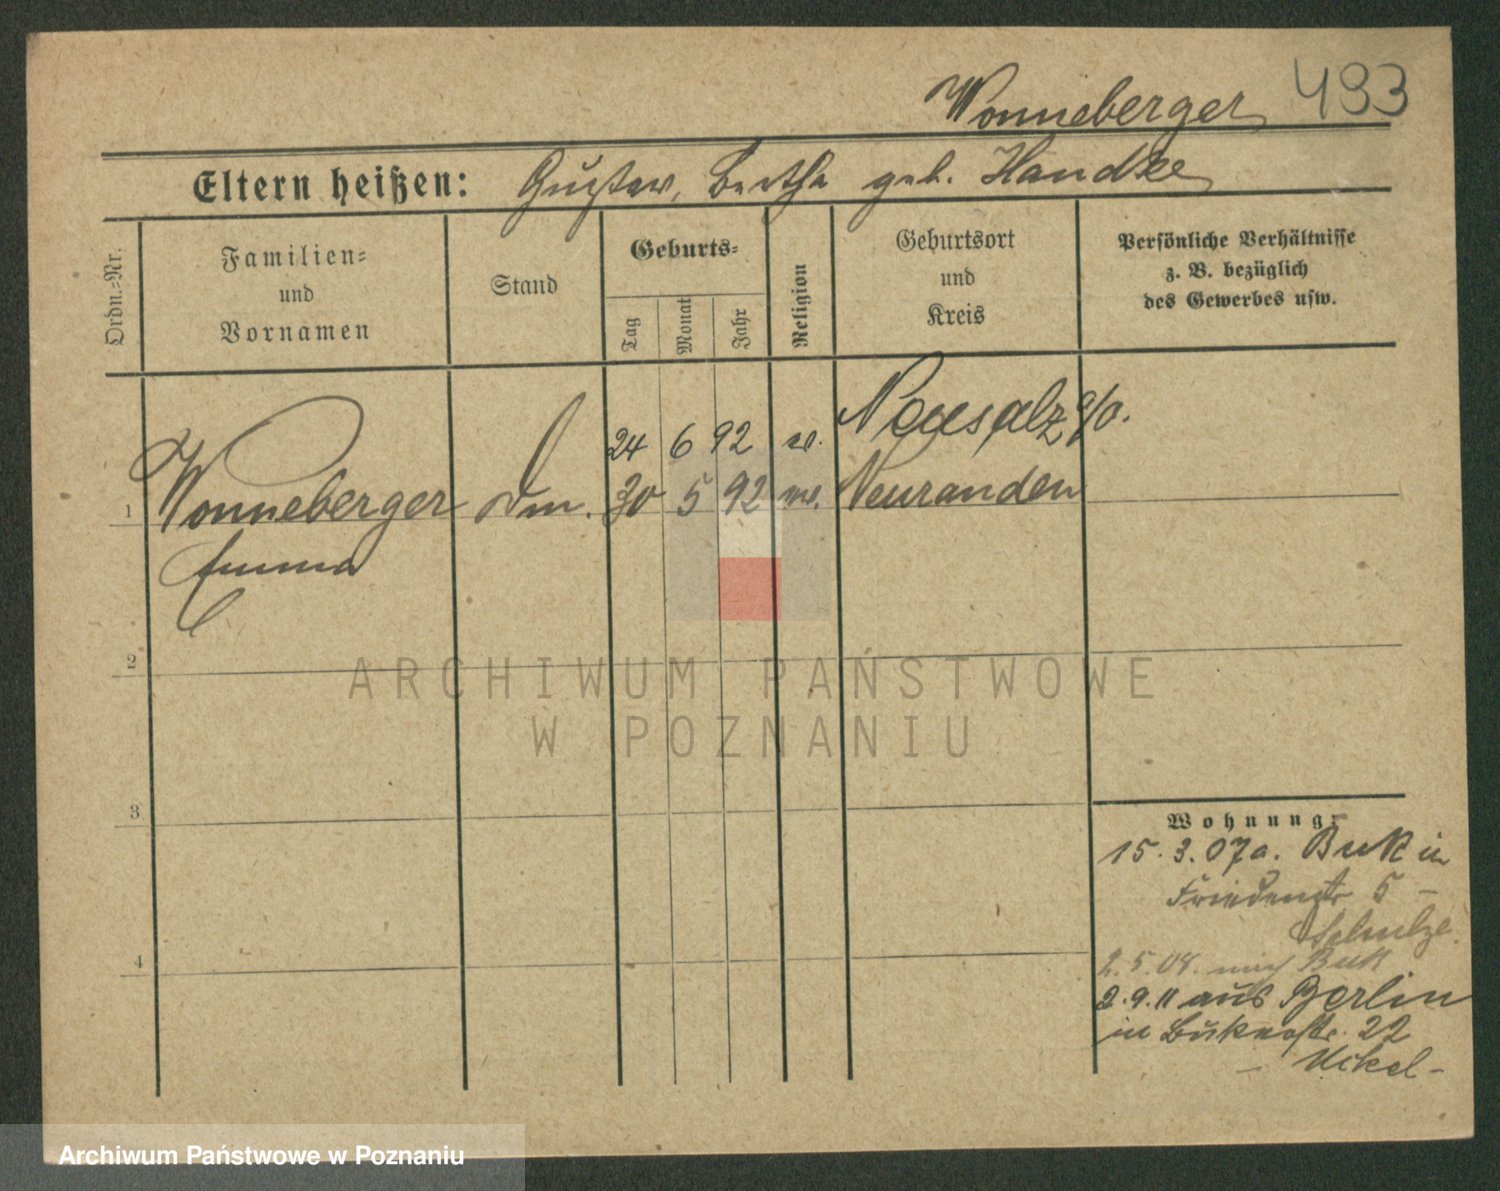 Wonneberger 493
Eltern heißen: Gustav, Bertha geb. Handke
Ordn.=Nr.
Familien=
und
Vornamen
Stand
Geburts=
Tag
Monat
Jahr
Religion
Geburtsort
und
Kreis
Persönliche Verhältnisse
z. B. bezüglich
des Gewerbes usw.
24 6 92 w. Neusalz a/O.
1 Wonneberger Dm. 30 5 92 w. Neuranden
Emma
2
3
4
Wohnung:
15.3.07 a. Buk in
Friedenstr 5 -
Schulze.
2.5.08. nach Buk
2.9.11 aus Berlin
in Bukerstr. 22
- Nikel -
ARCHIWUM PAŃSTWOWE
W POZNANIU
Archiwum Państwowe w Poznaniu